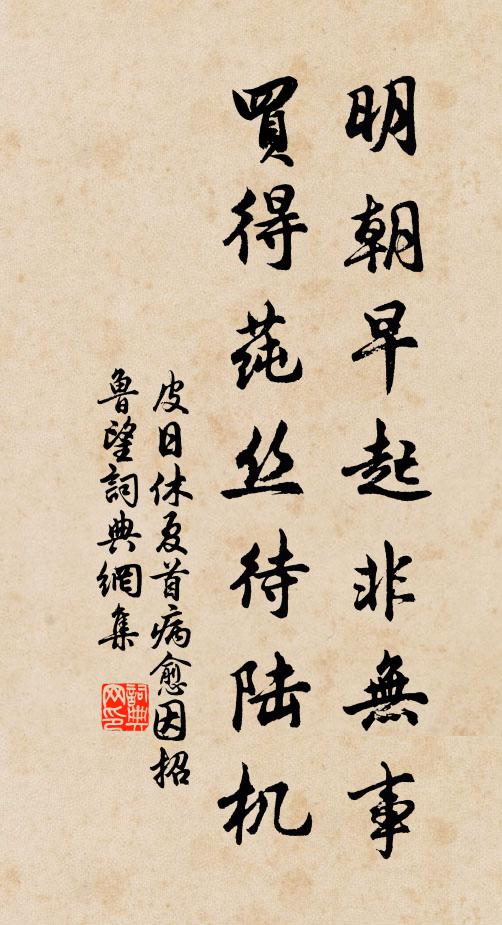 明朝早起非無事
買得莼丝待陆机
皮日休夏首病愈因招
魯望詞典網集
詞典网印